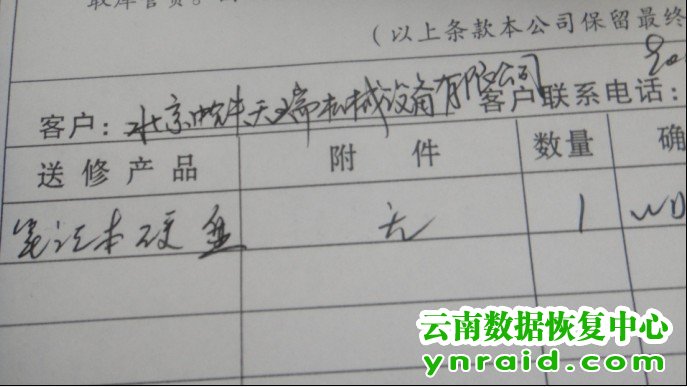 取库管费。
(以上条款本公司保留最终
客户: 北京 天瑞机械设备有限公司 客户联系电话:
送修产品 附件 数量 确
笔记本硬盘 无 1 WD
云南数据恢复中心
ynraid.com